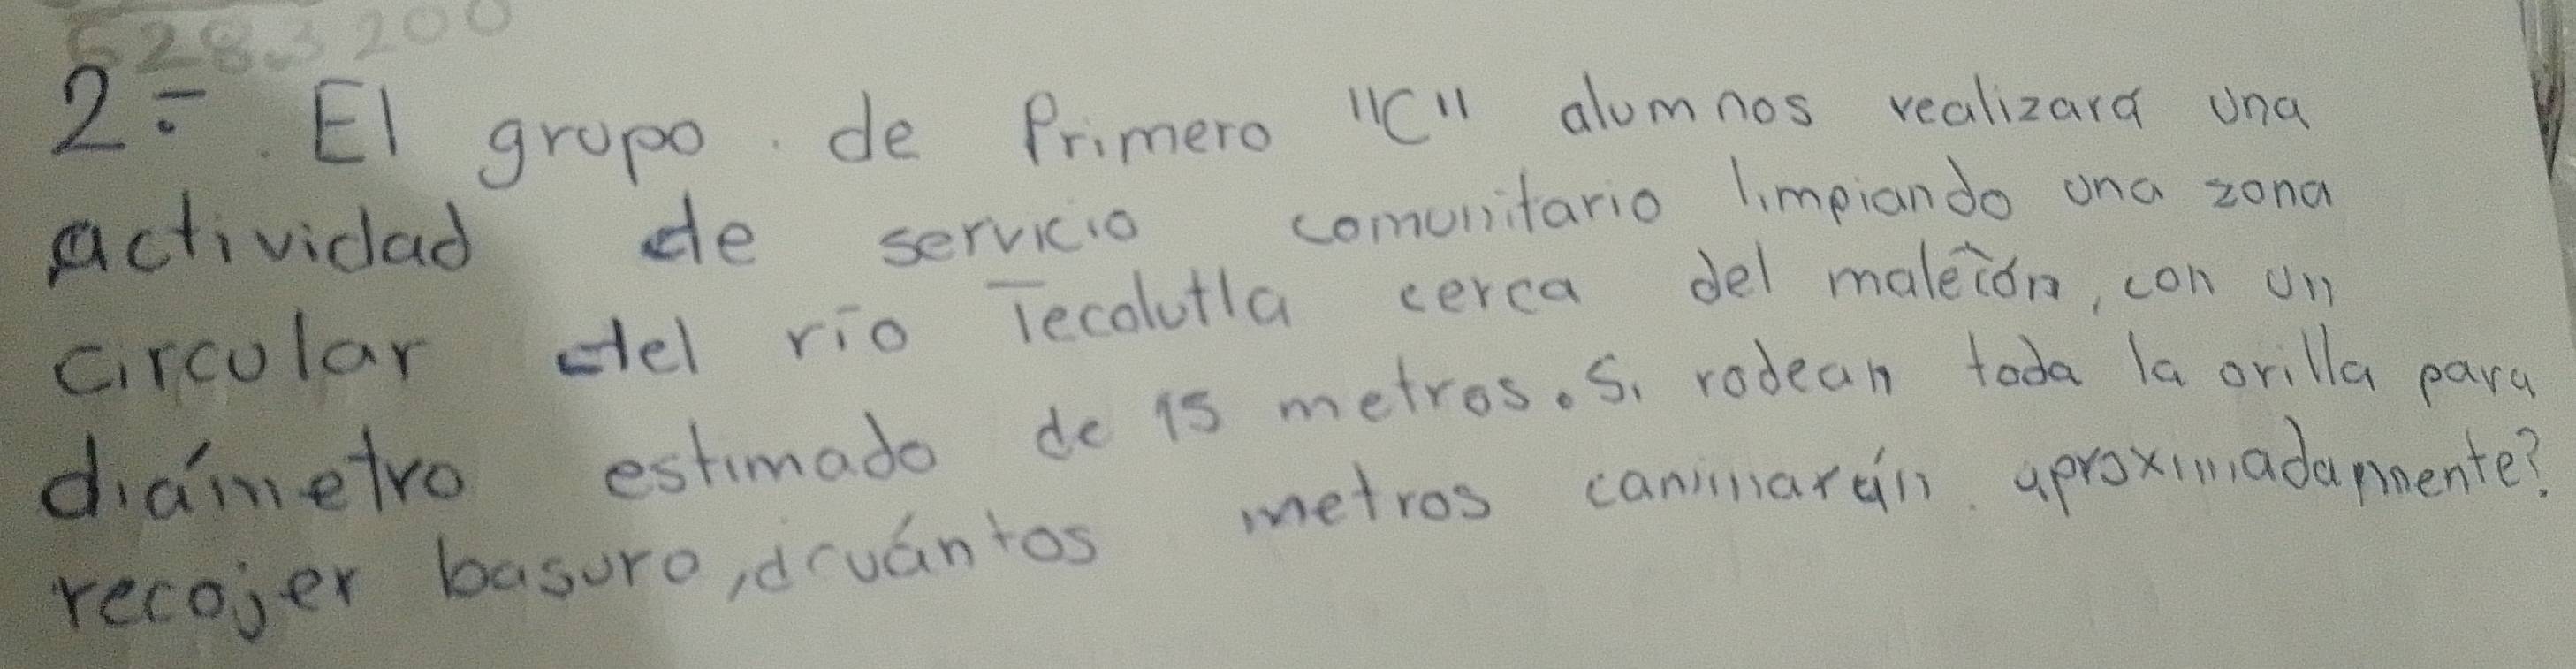 528.3200
2.- El grupo de Primero "C" alumnos realizara una
actividad de servicio comunitario limpiando una zona
circular del río Tecolutla cerca del malecón, con un
diámetro estimado de 15 metros. Si rodean toda la orilla para
recojer basura, ¿cuántos metros caminarán aproximadamente?